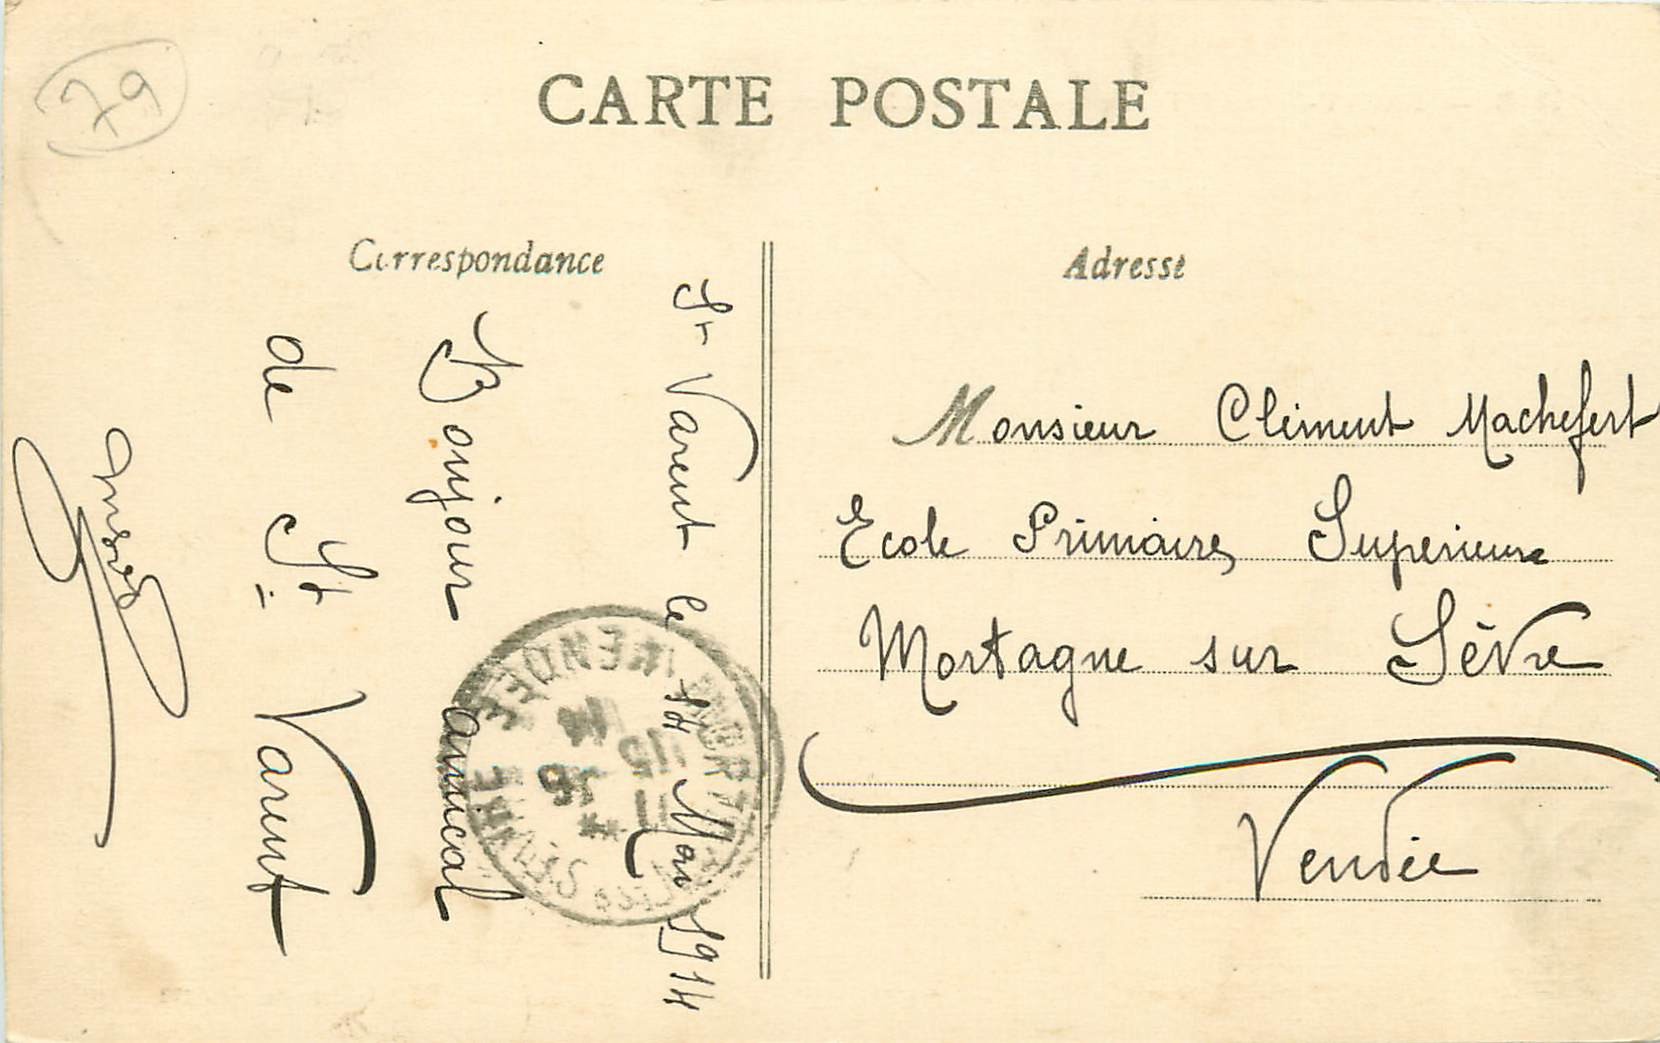 79
CARTE POSTALE
Correspondance
Adresse
St Varent le 14 Mai 1914
Bonjour amical
de St Varent
Monsieur Clément Machefert
Ecole Primaire Superieure
Mortagne sur Sèvre
Vendée